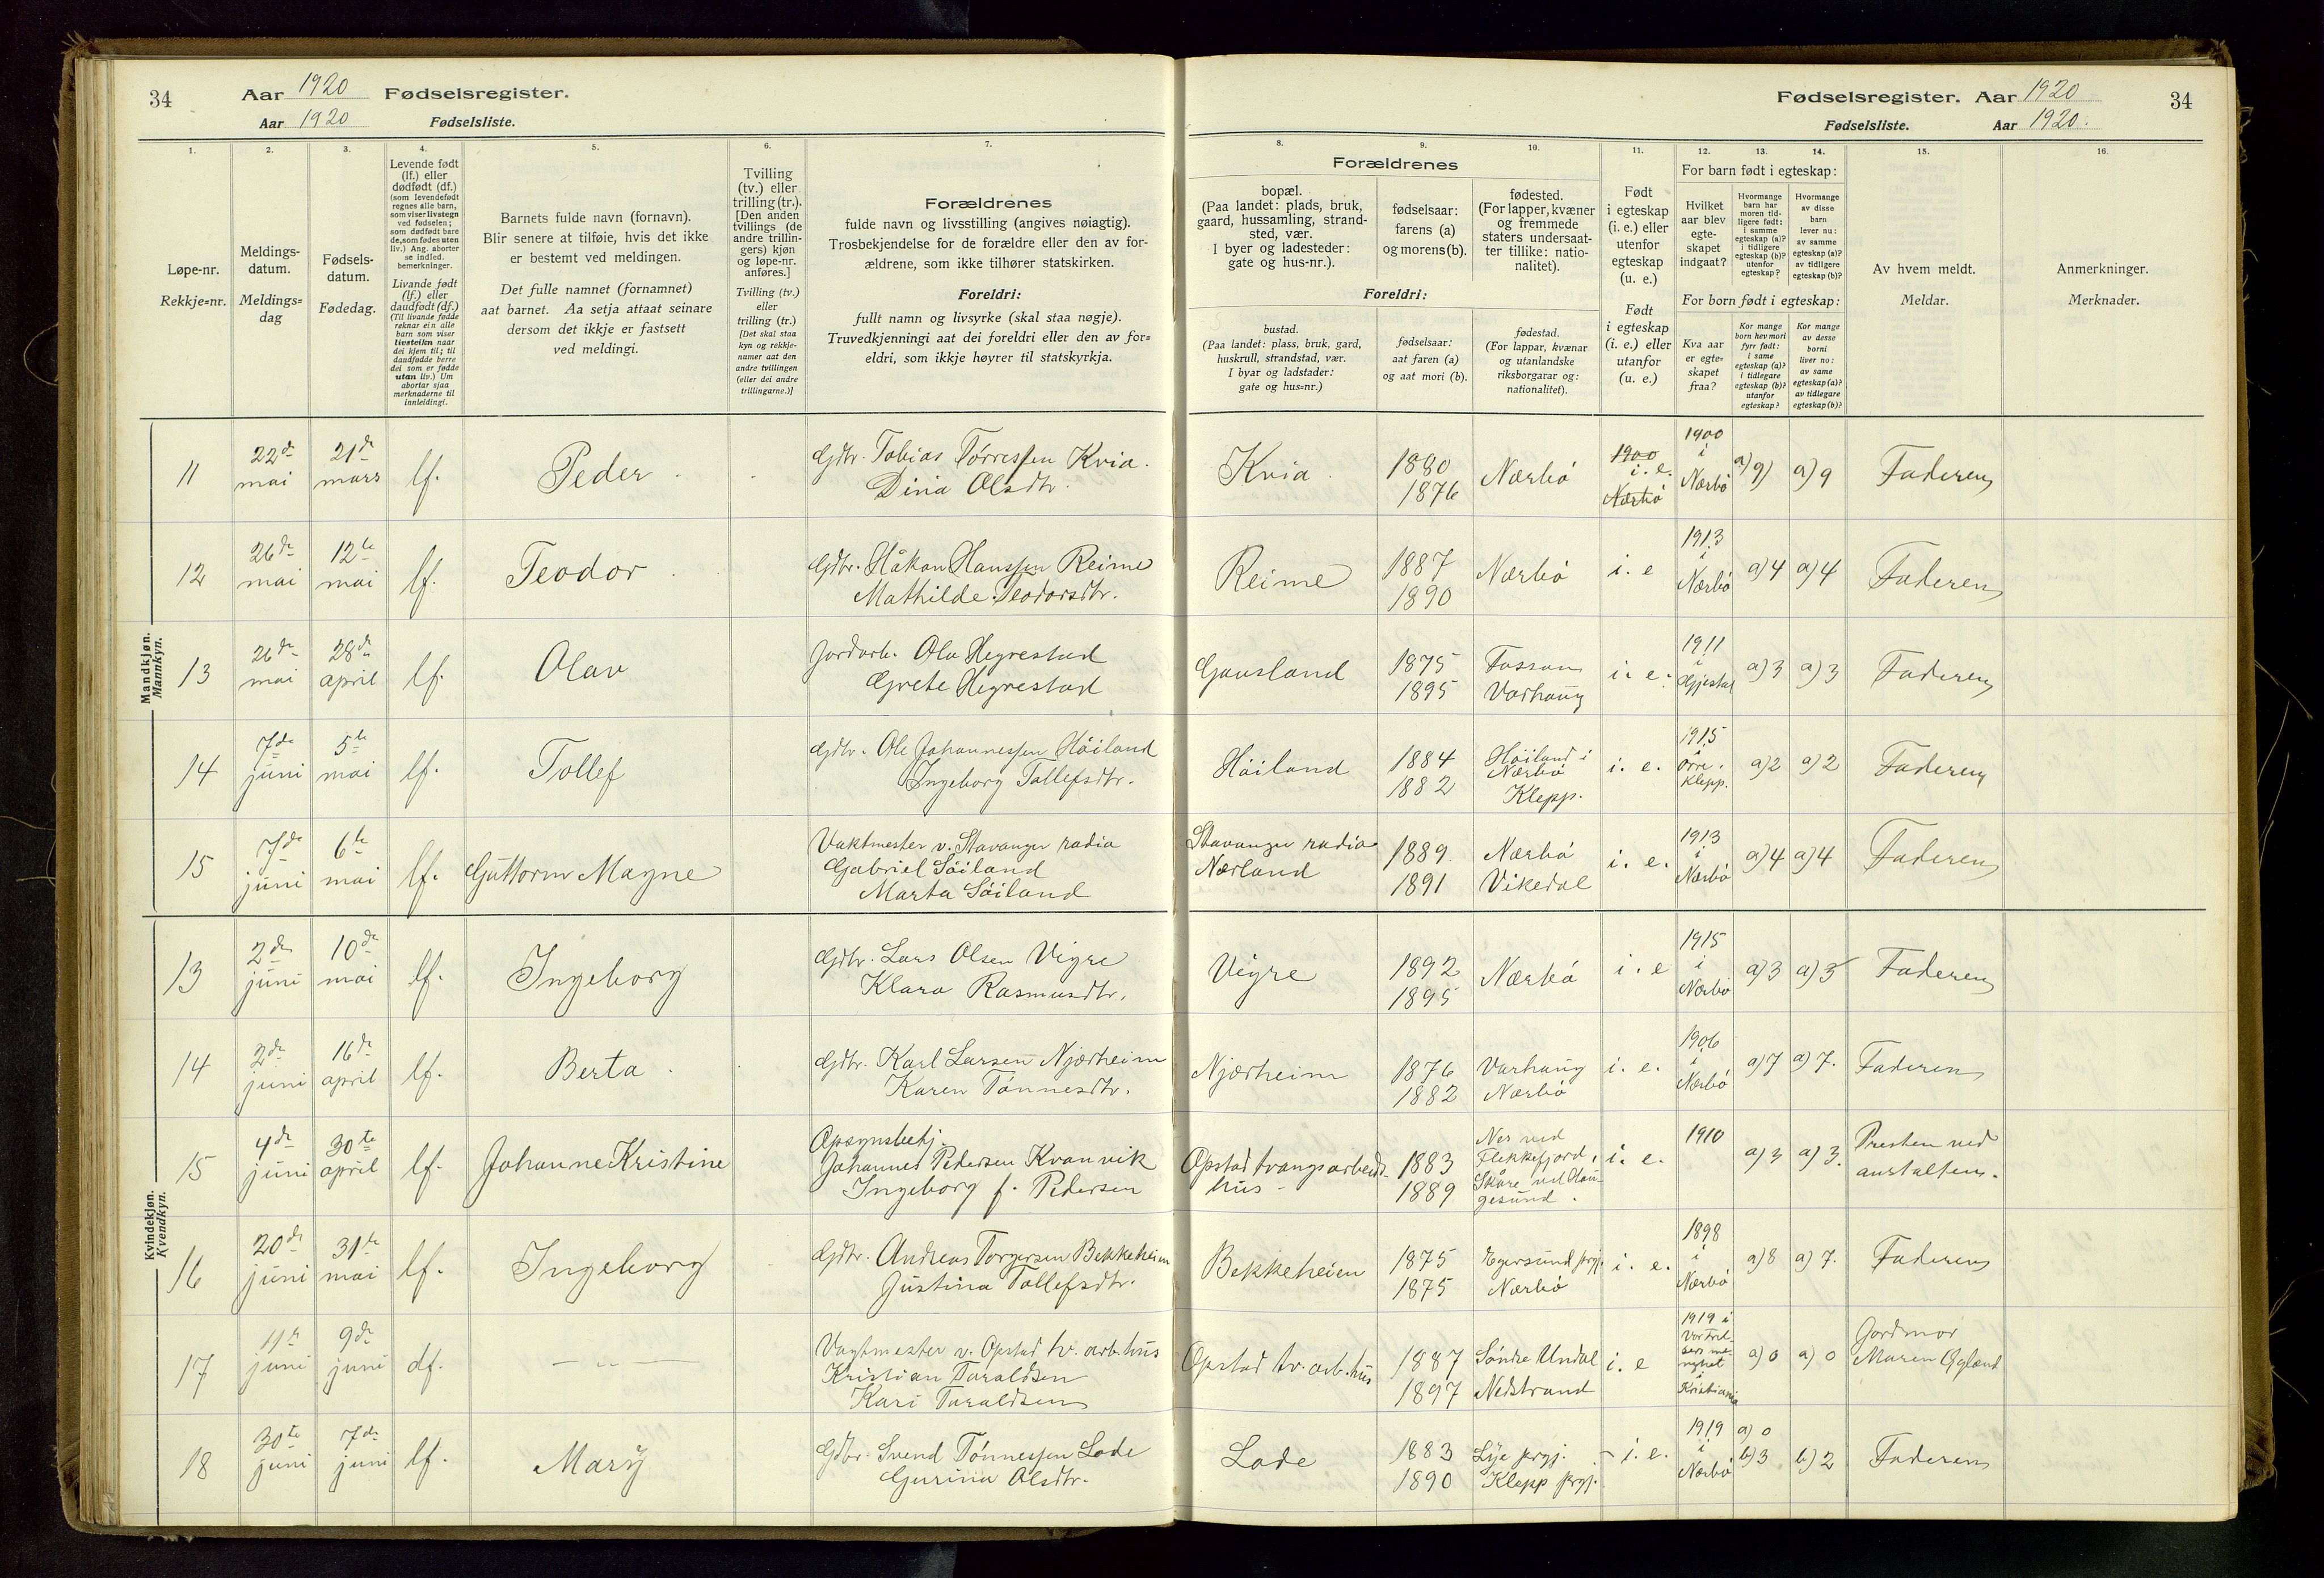 34 Aar 1920 Fødselsregister.
Aar 1920 Fødselsliste.
Fødselsregister. Aar 1920 34
Fødselsliste. Aar 1920.
1.
Løpe-nr.
Rekkje=nr.
2.
Meldings-
datum.
Meldings=
dag
3.
Fødsels-
datum.
Fødedag.
4.
Levende født
(lf.) eller
dødfødt (df.)
(som levendefødt
regnes alle barn,
som viser livstegn
ved fødselen;
som dødfødt bare
de, som fødes uten
liv.) Ang. aborter
se indled.
bemerkninger.
Livande født
(lf.) eller
daudfødt (df.)
(Til livande fødde
reknar ein alle
barn som viser
livsteikn naar
dei kjem til; til
daudfødde berre
dei som er fødde
utan liv.) Um
abortar sjaa
merknaderne til
innleidingi.
5.
Barnets fulde navn (fornavn).
Blir senere at tilføie, hvis det ikke
er bestemt ved meldingen.
Det fulle namnet (fornamnet)
aat barnet. Aa setja attaat seinare
dersom det ikkje er fastsett
ved meldingi.
6.
Tvilling
(tv.) eller
trilling (tr.).
[Den anden
tvillings (de
andre trillin-
gers) kjøn
og løpe-nr.
anføres.]
Tvilling (tv.)
eller
trilling (tr.)
[Det skal staa
kyn og rekkje-
numer aat den
andre tvillingen
(eller dei andre
trillingarne.)]
7.
Forældrenes
fulde navn og livsstilling (angives nøiagtig).
Trosbekjendelse for de forældre eller den av for-
ældrene, som ikke tilhører statskirken.
Foreldri:
fullt namn og livsyrke (skal staa nøgje).
Truvedkjenningi aat dei foreldri eller den av for=
eldri, som ikkje høyrer til statskyrkja.
Forældrenes
8.
bopæl.
(Paa landet: plads, bruk,
gaard, hussamling, strand-
sted, vær.
I byer og ladesteder:
gate og hus-nr.).
9.
fødselsaar:
farens (a)
og morens (b).
10.
fødested.
(For lapper, kvæner
og fremmede
staters undersaat-
ter tillike: natio-
nalitet).
Foreldri:
bustad.
(Paa landet: plass, bruk, gard,
huskrull, strandstad, vær.
I byar og ladstader:
gate og hus=nr.)
fødselsaar:
aat faren (a)
og aat mori (b).
fødestad.
(For lappar, kvænar
og utanlandske
riksborgarar og:
nationalitet).
11.
Født
i egteskap
(i. e.) eller
utenfor
egteskap
(u. e.)
Født
i egteskap
(i. e.) eller
utanfor
(u. e.)
For barn født i egteskap:
12.
Hvilket
aar blev
egte-
skapet
indgaat?
13.
Hvormange
barn har
moren tid-
ligere født:
i samme
egteskap (a)?
i tidligere
egteskap (b)?
utenfor
egteskap?
14.
Hvormange
av disse
barn
lever nu:
av samme
egteskap (a)?
av tidligere
egteskap (b)?
For born født i egteskap:
Kva aar
er egte-
skapet
fraa?
Kor mange
born hev mori
fyrr født:
i same
egteskap (a)?
i tidlegare
egteskap (b)?
utanfor
egteskap?
Kor mange
av desse
borni
liver no:
av same
egteskap (a)?
av tidlegare
egteskap (b)?
15.
Av hvem meldt.
Meldar.
16.
Anmerkninger.
Merknader.
Mandkjøn.
Mannkyn.
11 22de mai 21de mars lf. Peder Gdbr. Tobias Tørressen Kvia. Dina Olsdtr. Kvia 1880 1876 Nærbø 1900 i. e. Nærbø 1900 i Nærbø a) 9) a) 9 Faderen
12 26de mai 12te mai lf. Teodor Gdbr. Håkon Hanssen Reime Mathilde Teodorsdtr. Reime 1887 1890 Nærbø i. e 1913 i Nærbø a) 4 a) 4 Faderen
13 26de mai 28de april lf. Olav Jordarb. Ola Hegrestad Grete Hegrestad Gausland 1875 1895 Fossan Varhaug i. e. 1911 i Gjestal a) 3 a) 3 Faderen
14 7de juni 5te mai lf. Tollef Gdbr. Ole Johannessen Høiland Ingeborg Tollefsdtr. Høiland 1884 1882 Høiland i Nærbø Klepp. i. e. 1915 i Orre, Klepp. a) 2 a) 2 Faderen
15 7de juni 6te mai lf. Guttorm Magne Vaktmester v. Stavanger radio Gabriel Søiland Marta Søiland Stavanger radio Nærland 1889. 1891 Nærbø Vikedal i. e. 1913 i Nærbø a) 4 a) 4 Faderen
Kvindekjøn.
Kvendkyn.
13 2den juni 10de mai lf. Ingeborg Gdbr. Lars Olsen Vigre Klara Rasmusdtr. Vigre 1892 1895 Nærbø i. e 1915 i Nærbø a) 3 a) 3 Faderen
14 2den juni 16de april lf. Berta Gdbr. Karl Larsen Njærheim Karen Tønnesdtr. Njærheim 1876 1882 Varhaug Nærbø i. e. 1906 i Nærbø a) 7 a) 7. Faderen
15 4de juni 30te april lf. Johanne Kristine Opsynsbetj. Johannes Pedersen Kvanvik Ingeborg f. Pedersen Opstad tvangsarbeids- hus 1883 1889 Nes ved Flekkefjord, Skåre ved Hau- gesund. i. e. 1910 a) 3 a) 3. Presten ved anstalten.
16 20de juni 31te mai lf. Ingeborg Gdbr. Andreas Torgersen Bekkeheien Justina Tollefsdtr. Bekkeheien 1875 1875 Egersund prgj. Nærbø i. e. 1898 i Nærbø a) 8 a) 7. Faderen
17 11te juni 9de juni df. — „ — Vagtmester v. Opstad tv. arb. hus Kristian Taraldsen Kari Taraldsen Opstad tv. arb. hus 1887 1897 Søndre Undal Nedstrand i. e 1919 i Vor Frel- sers me- nighet i Kristiania a) 0 a) 0 Jordmor Maren Ogland
18 30te juni 7de juni lf. Mary Gdbr. Svend Tønnessen Lode Gurina Olsdtr. Lode 1883 1890 Lye prgj. Klepp prgj. - i. e. 1919 i Nærbø a) 0 b) 3 b) 2 Faderen